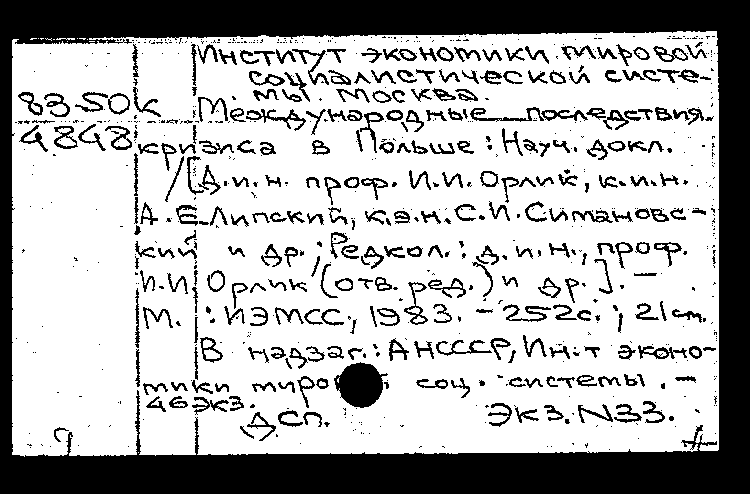 Институт экономики мировой
социалистической систе-
мы. Москва.
83-50к Международные последствия
4848 кризиса в Польше : Науч. докл.
/[Д.и.н. проф. И.И. Орлик, к.и.н.
А.Е. Липский, к.э.н. С.И. Симановс-
кий и др. ; Редкол.: д.и.н., проф.
И.И. Орлик (отв. ред.) и др.]. —
М. : ИЭМСС, 1983. - 252с. ; 21 см.
В надзаг.: АН СССР, Ин-т эконо-
мики миров й соц. системы. —
46 экз.
ДСП. Экз. N33.